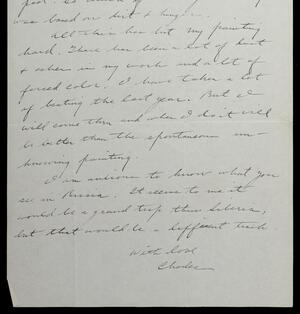 was based on dirt &
All this has hit my painting
hard. There has been a lot of dirt
& ashes in my work and a lot of
forced color. I have taken a lot
of beating the last year. But I
will come thru and when I do it will
be better than the spontaneous un-
knowing painting.
I am anxious to know what you
see in Russia. It seems to me it
would be a grand trip thru Siberia,
but that would be a different task.
With love
Charles